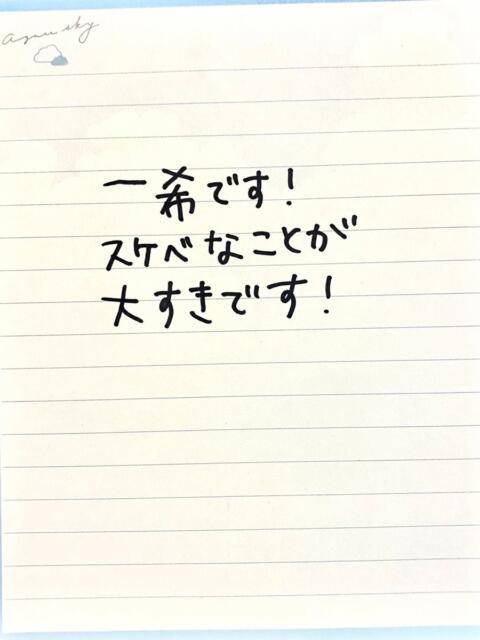 azure sky
一希です!
スケベなことが
大すきです!